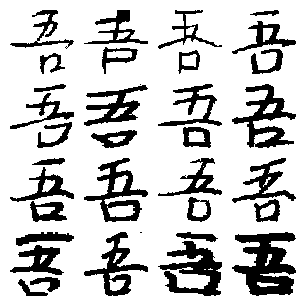 吾吾吾吾
吾吾吾吾
吾吾吾吾
吾吾吾吾